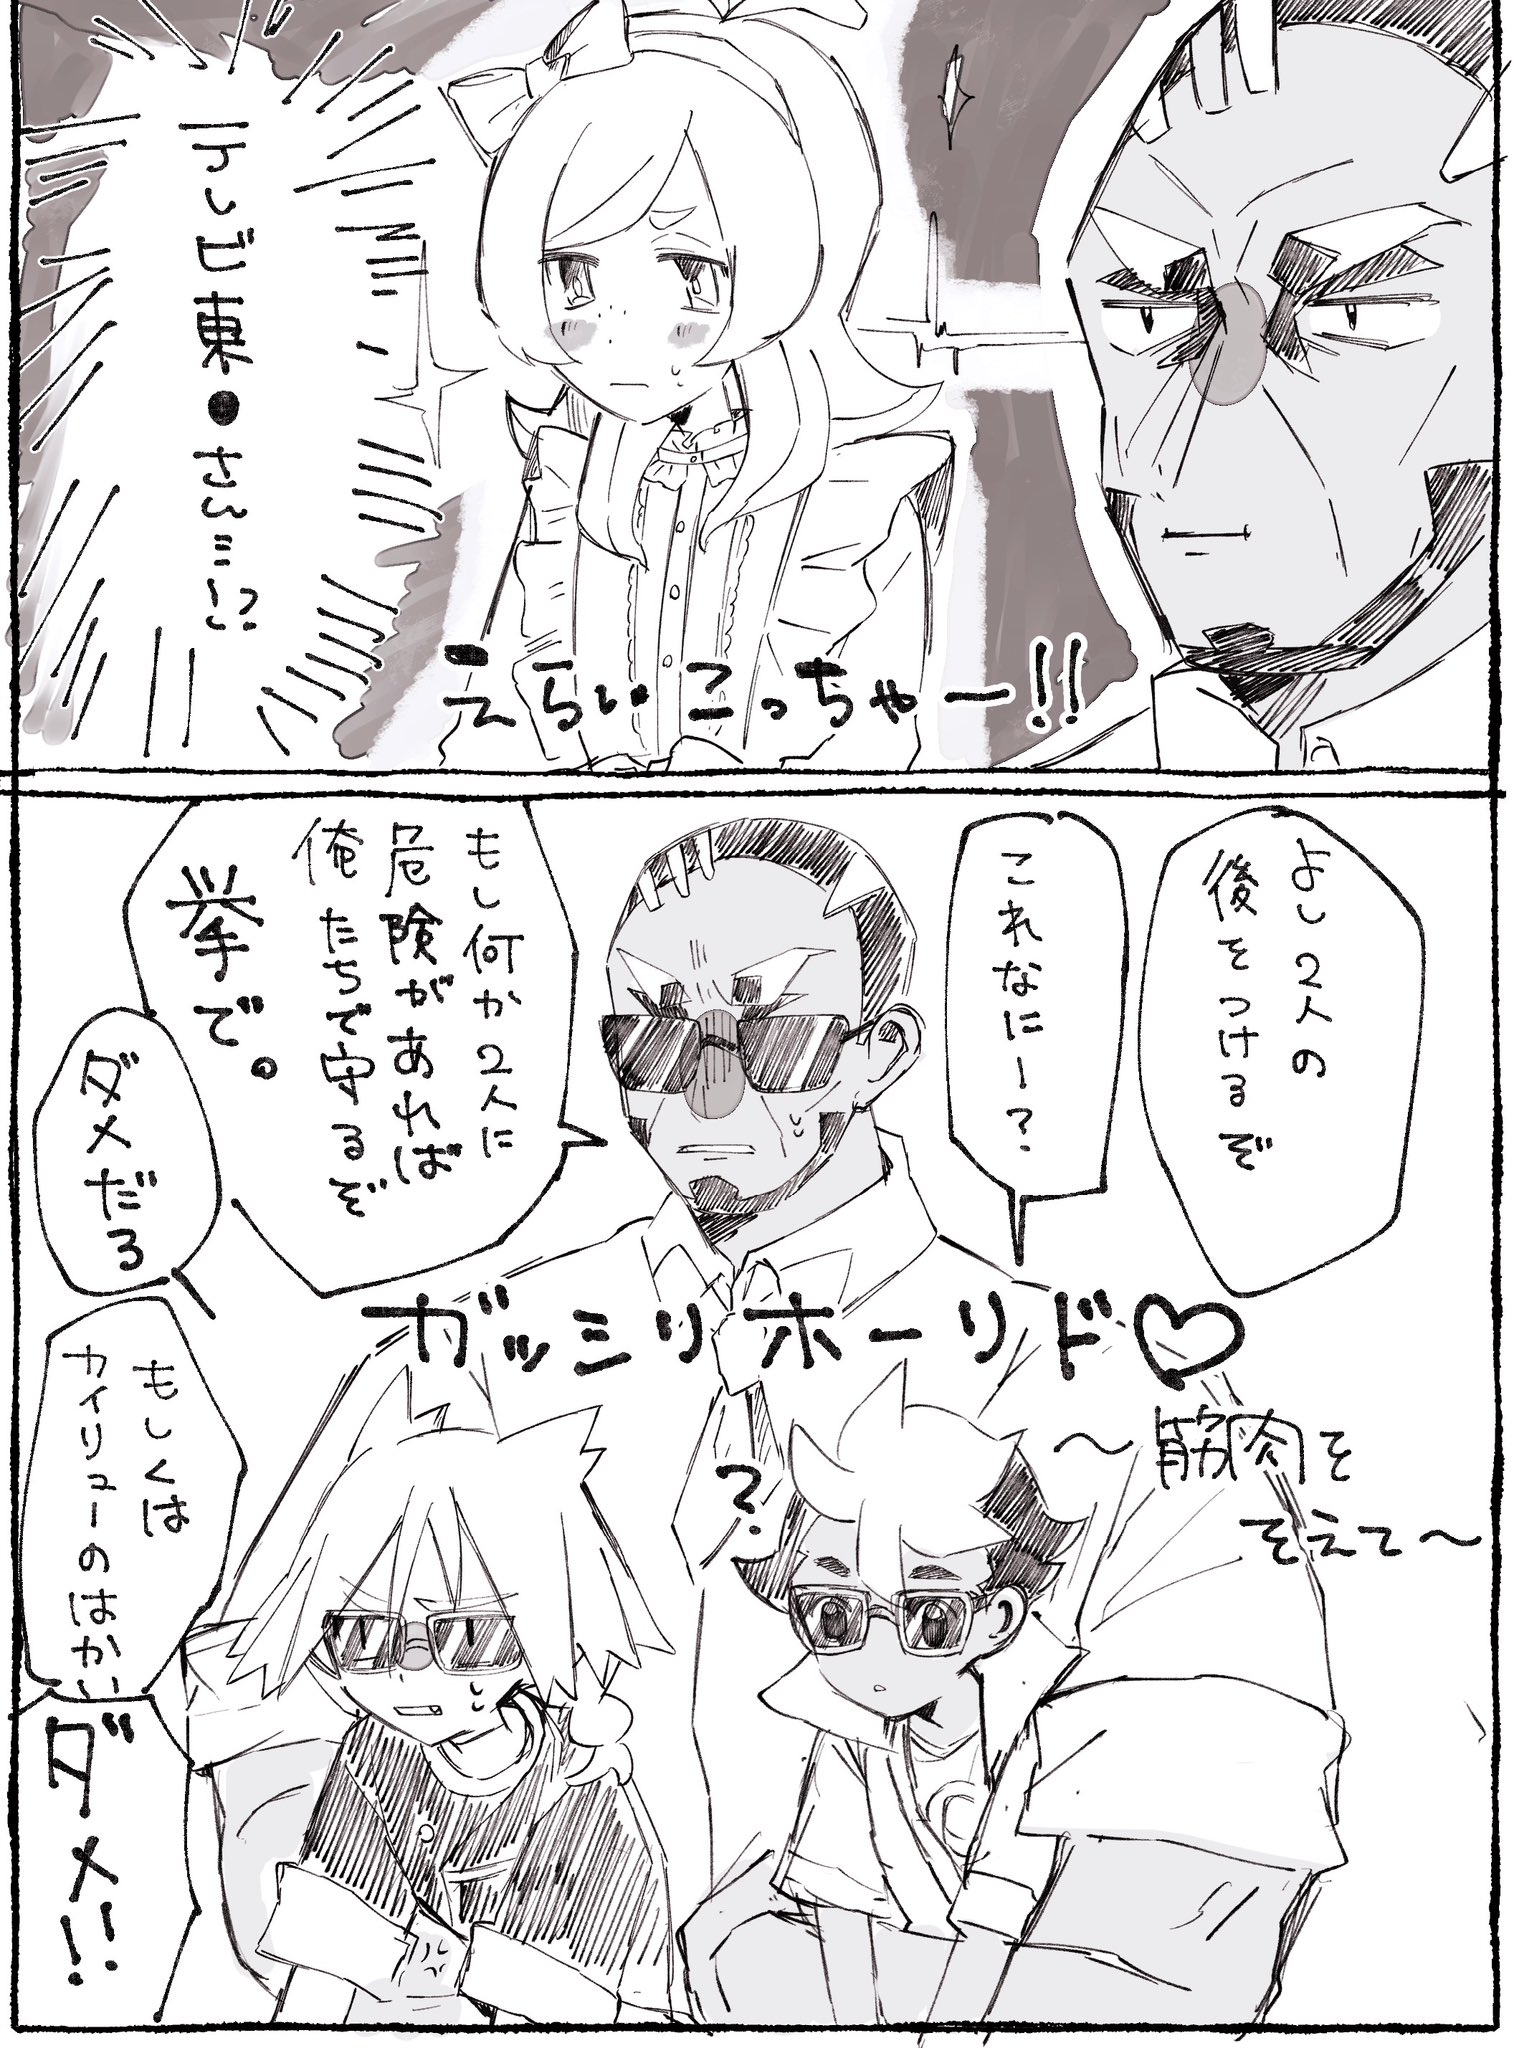 テレビ東●さぁ…ん゙
えらいこっちゃー!!
よし2人の
後をつけるぞ
これなにー?
もし何か2人に
危険があれば
俺たちで守るぞ
拳で。
ダメだろ
もしくは
カイリューのはかい
ダメ!!
ガッシリホールド♡
〜筋肉を
そえて〜
?